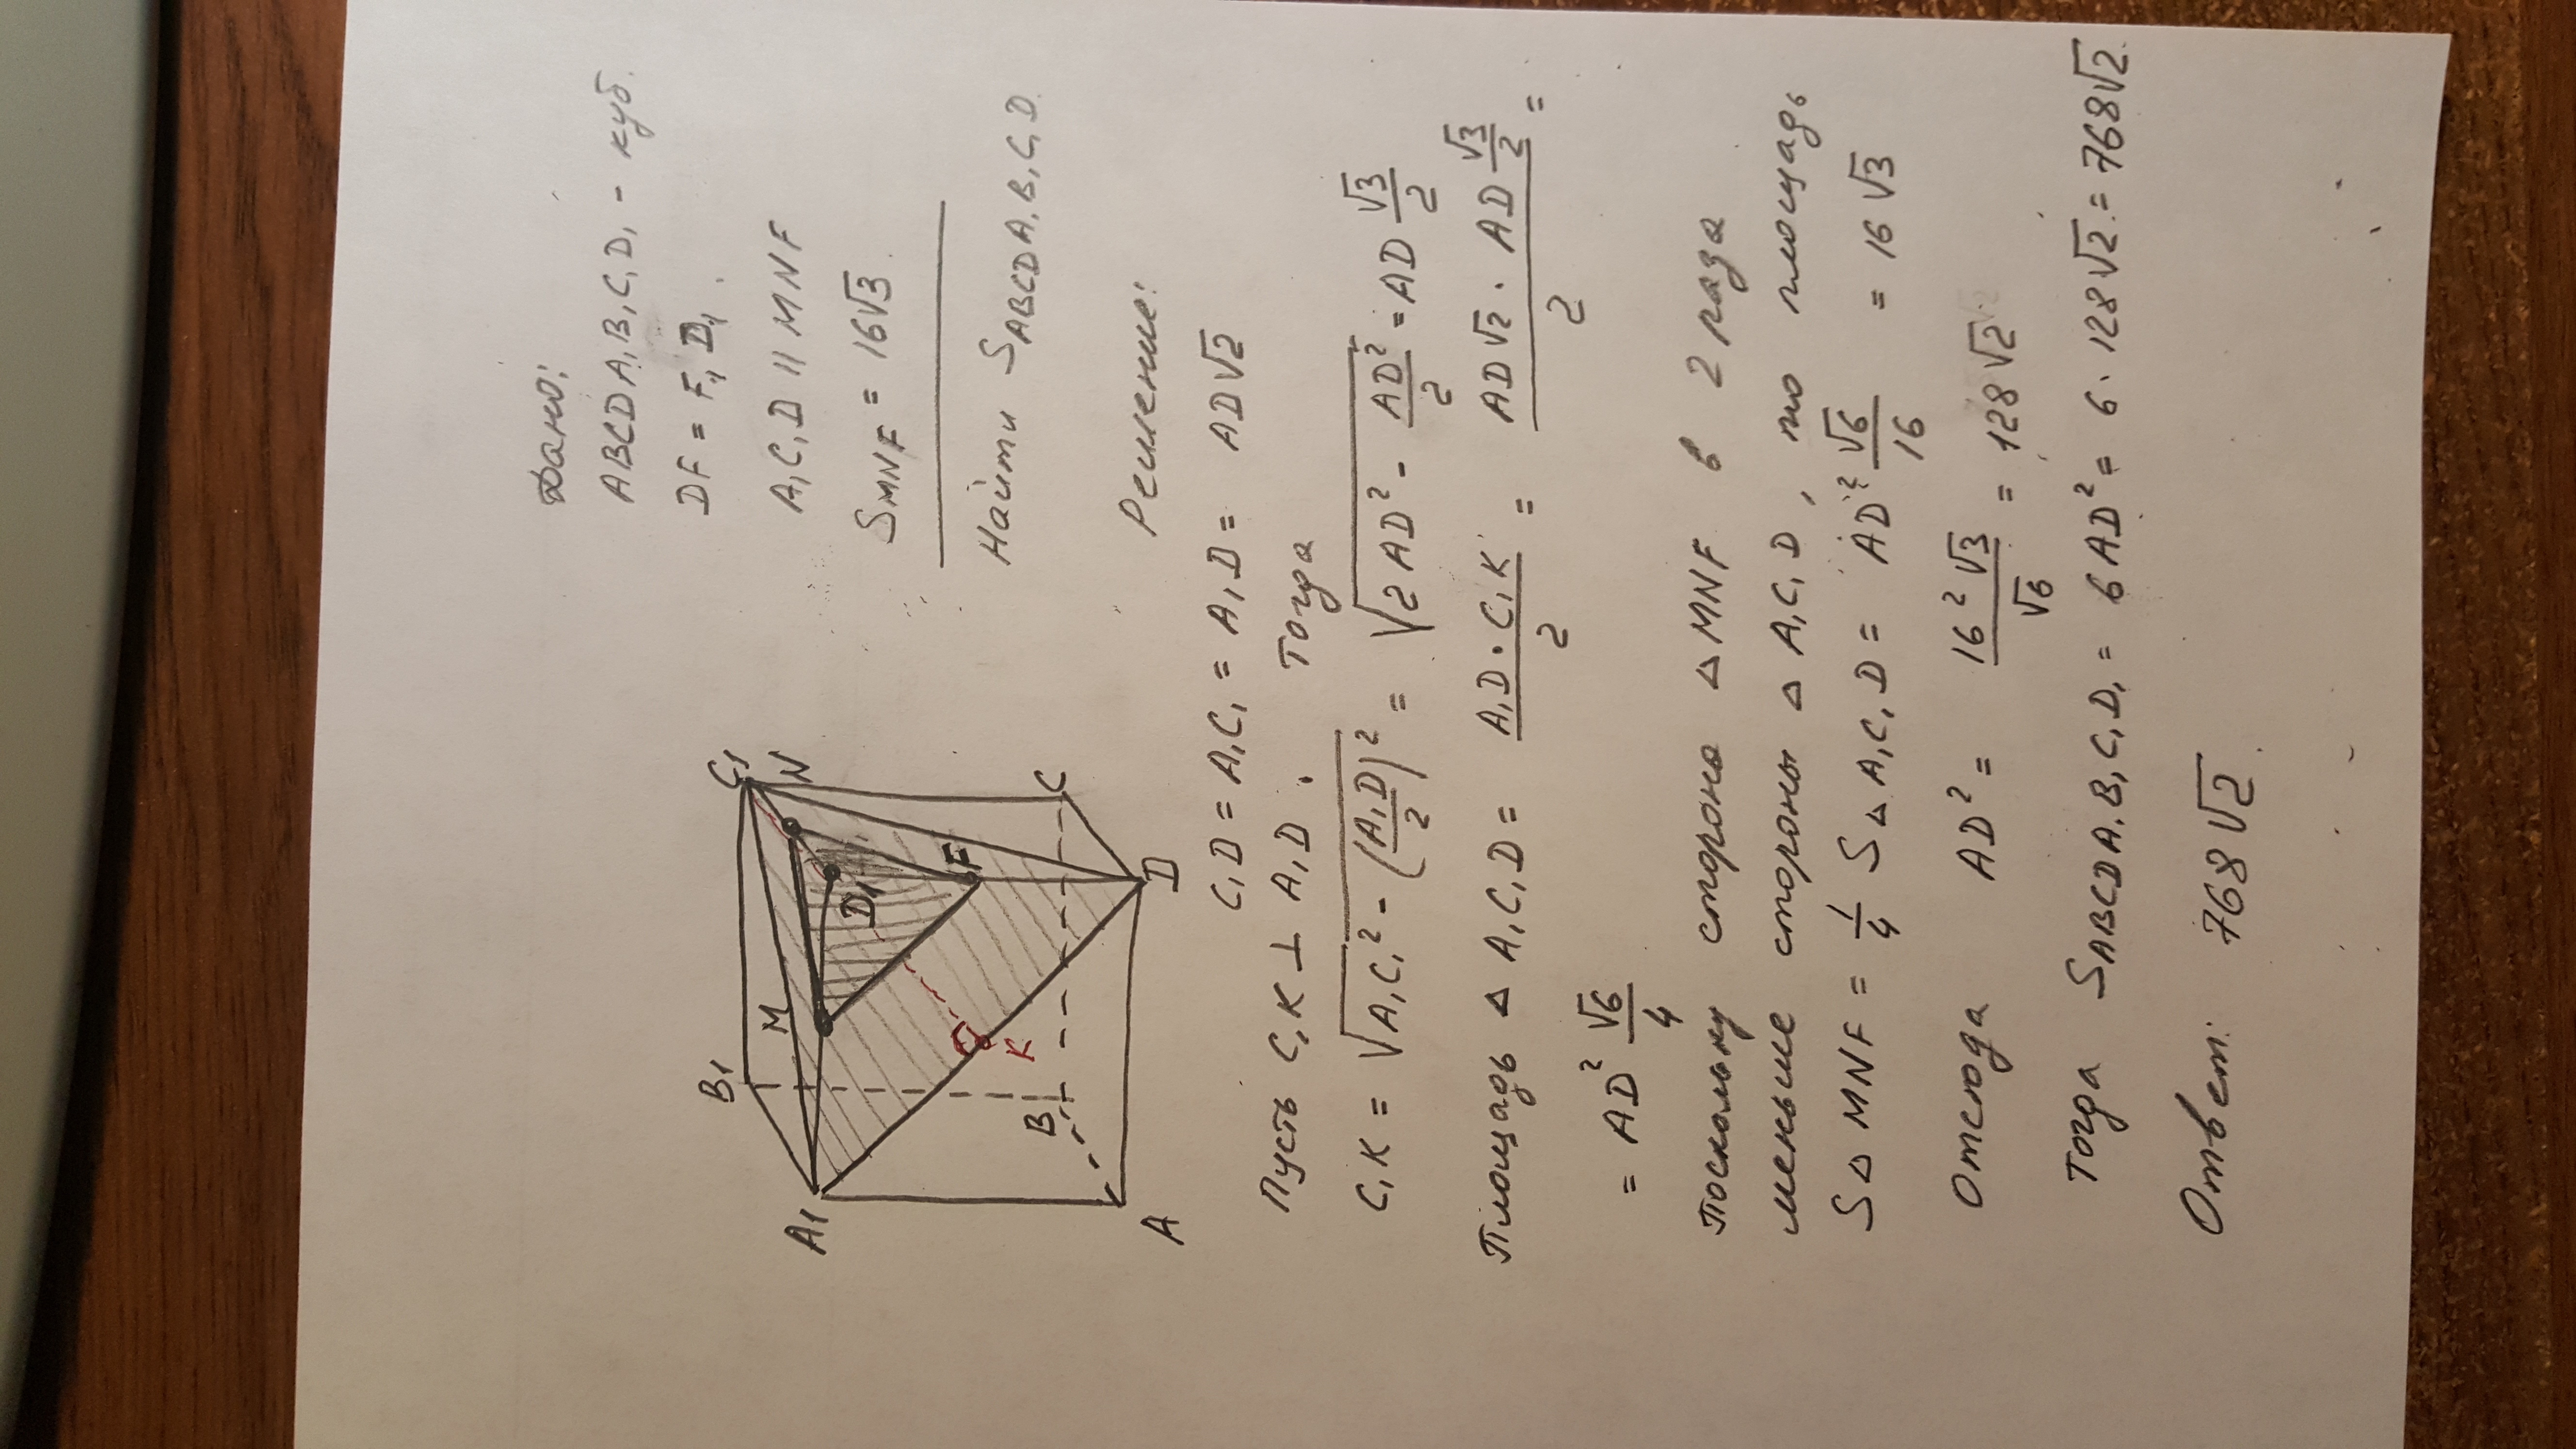 Дано:
ABCDA₁B₁C₁D₁ - куб.
DF = F₁D₁.
A₁C₁D || MNF
S_MNF = 16√3.
Найти S_ABCDA₁B₁C₁D
B₁ C₁
M N
A₁ D₁
F
K
B C
A D
Решение:
C₁D = A₁C₁ = A₁D = AD√2
Пусть C₁K ⊥ A₁D. Тогда
C₁K = √(A₁C₁² - (A₁D/2)²) = √(2AD² - AD²/2) = AD √3/2
Площадь △ A₁C₁D = (A₁D · C₁K)/2 = (AD√2 · AD √3/2)/2 =
= AD² √6/4
Поскольку сторона △ MNF в 2 раза
меньше стороны △ A₁C₁D, то площадь
S△ MNF = 1/4 S△ A₁C₁D = AD² √6/16 = 16√3
Отсюда AD² = 16²√3/√6 = 128√2
Тогда S_ABCDA₁B₁C₁D₁ = 6AD² = 6 · 128√2 = 768√2.
Ответ: 768√2.